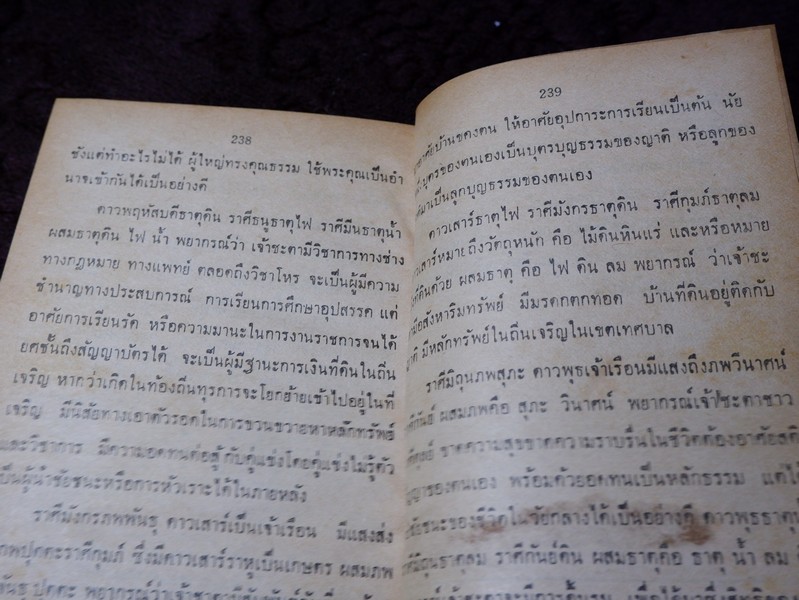 238
ชังแต่ทำอะไรไม่ได้ ผู้ใหญ่ทรงคุณธรรม ใช้พระคุณเป็นอำ
นาจเข้ากันได้เป็นอย่างดี
ดาวพฤหัสบดีธาตุดิน ราศีธนูธาตุไฟ ราศีมีนธาตุน้ำ
ผสมธาตุดิน ไฟ น้ำ พยากรณ์ว่า เจ้าชะตามีวิชาการทางช่าง
ทางกฎหมาย ทางแพทย์ ตลอดถึงวิชาโหร จะเป็นผู้มีความ
ชำนาญทางประสบการณ์ การเรียนการศึกษาอุปสรรค แต่
อาศัยการเรียนรัด หรือความมานะในการงานราชการจนได้
ยศชั้นถึงสัญญาบัตรได้ จะเป็นผู้มีฐานะการเงินที่ดินในถิ่น
เจริญ หากว่าเกิดในท้องถิ่นทุรการจะโยกย้ายเข้าไปอยู่ในที่
เจริญ มีนิสัยทางเอาตัวรอดในการขวนขวายหาหลักทรัพย์
และวิชาการ มีความอดทนต่อสู้กับคู่แข่งโดยคู่แข่งไม่รู้ตัว
เป็นผู้นำชัยชนะหรือการหัวเราะได้ในภายหลัง
ราศีมังกรภพพันธุ ดาวเสาร์เป็นเจ้าเรือน มีแสงส่ง
ภพปุตตะราศีกุมภ์ ซึ่งมีดาวเสาร์ราหูเป็นเกษตร ผสมภพ
ปุตตะ พยากรณ์ว่าเจ้าชะตา
239
บ้านของตน ให้อาศัยอุปการะการเรียนเป็นต้น นัย
บุตรของตนเองเป็นบุตรบุญธรรมของญาติ หรือลูกของ
มาเป็นลูกบุญธรรมของตนเอง
ดาวเสาร์ธาตุไฟ ราศีมังกรธาตุดิน ราศีกุมภ์ธาตุลม
เสาร์หมายถึงวัตถุหนัก คือ ไม้ดินหินแร่ และหรือหมาย
ที่ดินด้วย ผสมธาตุ คือ ไฟ ดิน ลม พยากรณ์ ว่าเจ้าชะ
อสังหาริมทรัพย์ มีมรดกตกทอด บ้านที่ดินอยู่ติดกับ
มีหลักทรัพย์ในถิ่นเจริญในเขตเทศบาล
ราศีมิถุนภพสุภะ ดาวพุธเจ้าเรือนมีแสงถึงภพวินาศน์
ราศีกันย์ ผสมภพคือ สุภะ วินาศน์ พยากรณ์เจ้าชะตาชาว
ขาดความสุขขาดความราบรื่นในชีวิตต้องอาศัยสติ
ของตนเอง พร้อมด้วยอดทนเป็นหลักธรรม แต่ได้
ชัยชนะของชีวิตในวัยกลางได้เป็นอย่างดี ดาวพุธธาตุน้ำ
ราศีมิถุนธาตุลม ราศีกันย์ดิน ผสมธาตุคือ ธาตุ น้ำ ลม